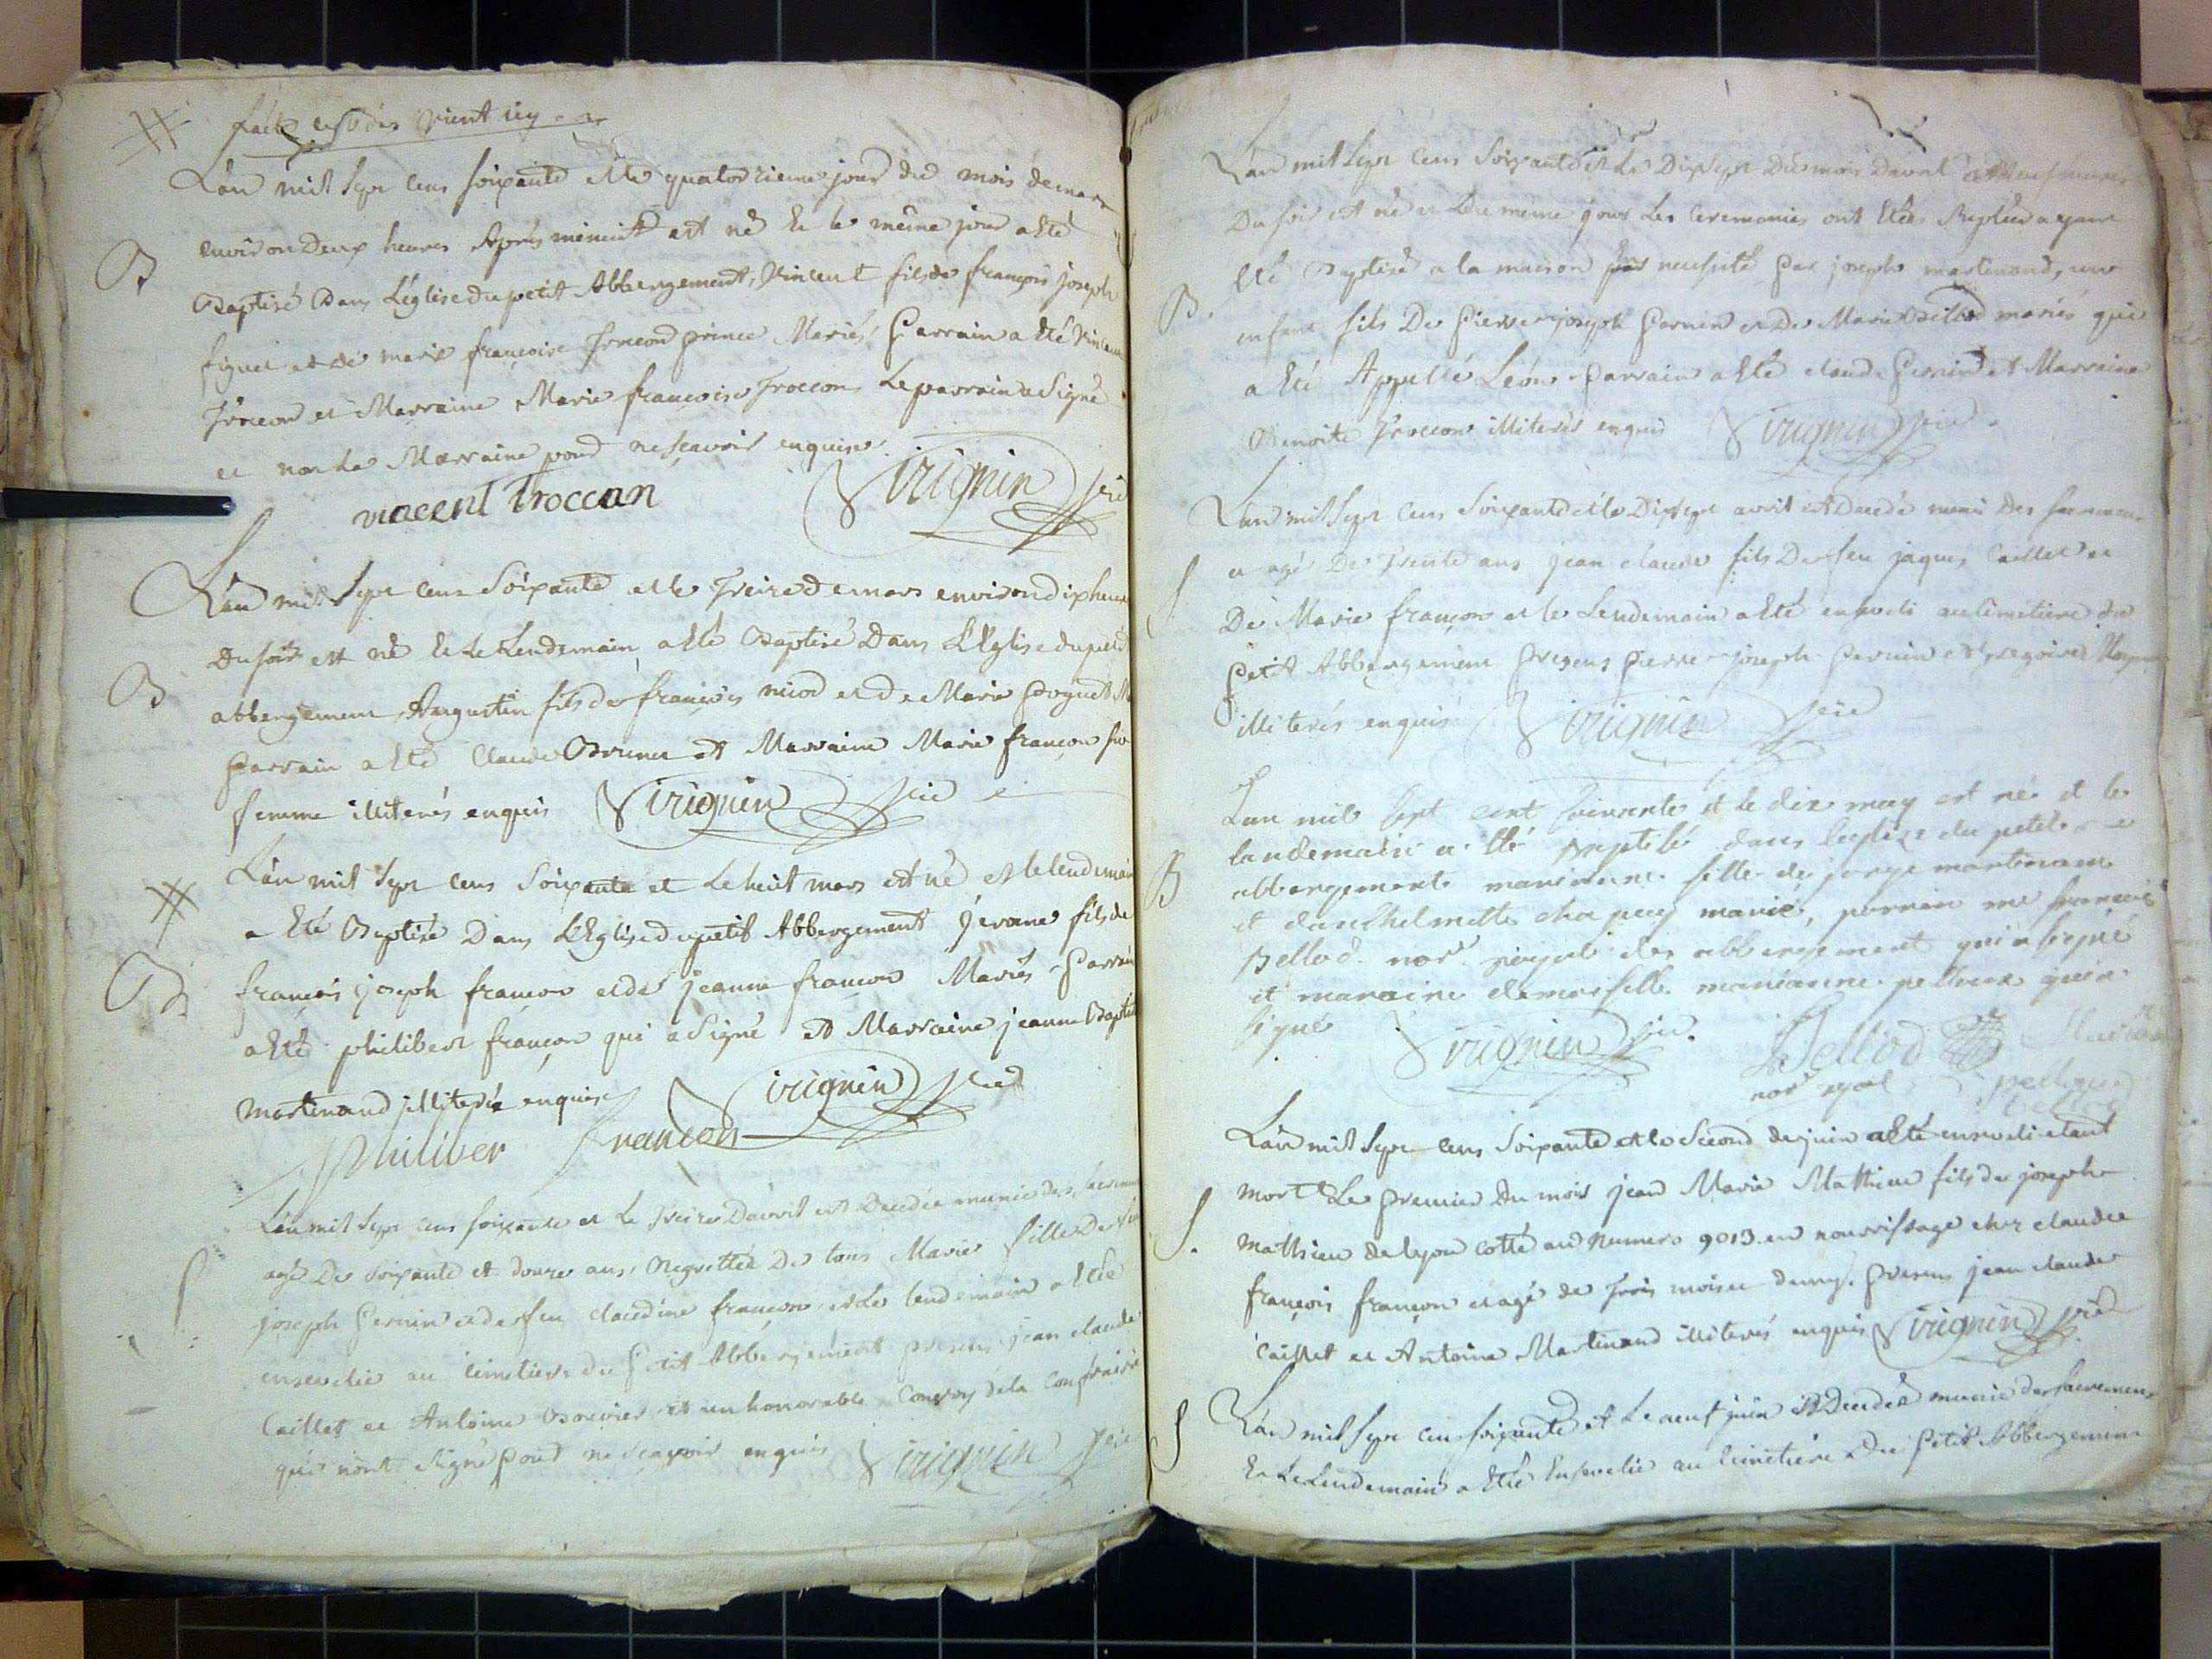 L'an mil Sept cens soixante et le quatorzieme jour du mois de mars
B
environ Deux heures Aprés minuit est né Et le même jour a Eté
Baptisé Dans L'église du petit Abbergement, Vincent fils de françois joseph
figuet et de marie françoise Troccon prince Mariés, Parrain a Eté Vincent
Troccon et Marraine Marie françoise Troccon Le parrain a Signé
et non La Marraine pour ne sçavoir enquise.
vincent Troccon Virignin
L'an mil Sept cens Soixante et le Treize de mars environ dix heures
Du soir est né Et Le Lendemain a Eté Baptisé Dans L'Eglise du petit
B
abbergement, Augustin fils de françois niod et de Marie
Parrain a Eté Claude Brunet et Marraine Marie françon sa
femme illiterés enquis Virignin
L'an mil Sept cens Soixante et Le huit mars est né et le lendemain
a Eté Baptisé Dans L'Eglise du petit Abbergement jerome fils de
B
françois joseph françon et de jeanne françon Mariés, Parrain
a Eté philibert françon qui a Signé et Marraine jeanne Baptiste
martinand illiterée enquise Virignin
Philiber francon
L'an mil Sept cens soixante et Le Treize D'avril est Decedée munie des sacremens
agé De Soixante et douze ans, Regrettée De tous Marie fille De feu
joseph Pernin et de feu claudine françon et Le lendemain a Eté
ensevelie au cimetiere du Petit Abbergement presens jean claude
Caillet et Antoine Bouvier et un honorable Convoy de la Confrairie
qui n'ont Signé pour ne sçavoir enquis Virignin
L'an mil Sept cens Soixante et Le Dix Sept Du mois D'avril a neuf heures
Du soir est né et Du même jour Les Ceremonies ont Etées ayant
Eté Baptisé a la maison par necessité par joseph martinand, un
B.
enfant fils De Pierre joseph Pernin et De Marie Bellod mariés qui
a Eté Appellé Léon Parrain a Eté claude Pernin et Marraine
Benoite Troccon illiterés enquis Virignin
L'an mil Sept cens Soixante et le Dix Sept avril est decedé muni Des sacremens
S
et agé De Trente ans jean claude fils De feu jaques Caillet et
De Marie françon et le Lendemain a Eté enseveli au Cimetiere du
Petit Abbergement Presens Pierre joseph Pernin et
illiterés enquis Virignin
L'an mil sept cent soixente et le dix may est né et le
landemain a été baptisé dans leglize du petit
B
abbergement marianne fille de jorge martinant
et danthelmette chapuy marié, parrain me françois
Bellod nore royal des abbergement qui a signé
et maraine demoiselle marianne pelloux qui a
signé Virignin Bellod
nore royal
L'an mil Sept cens Soixante et le Second de juin a Eté enseveli etant
mort Le premier du mois jean Marie Mathieu fils de joseph
S.
Mathieu de lyon cotté au Numero 9013 en nourrissage chez claude
françois françon et agé de Trois mois et demy. Presens jean claude
Caillet et Antoine Martinand illiterés enquis Virignin
S
L'an mil Sept cens soixante et Le neuf juin est Decedée munie des sacremens
Et Le Lendemain a Eté Ensevelie au Cimetiere Du Petit Abbergement